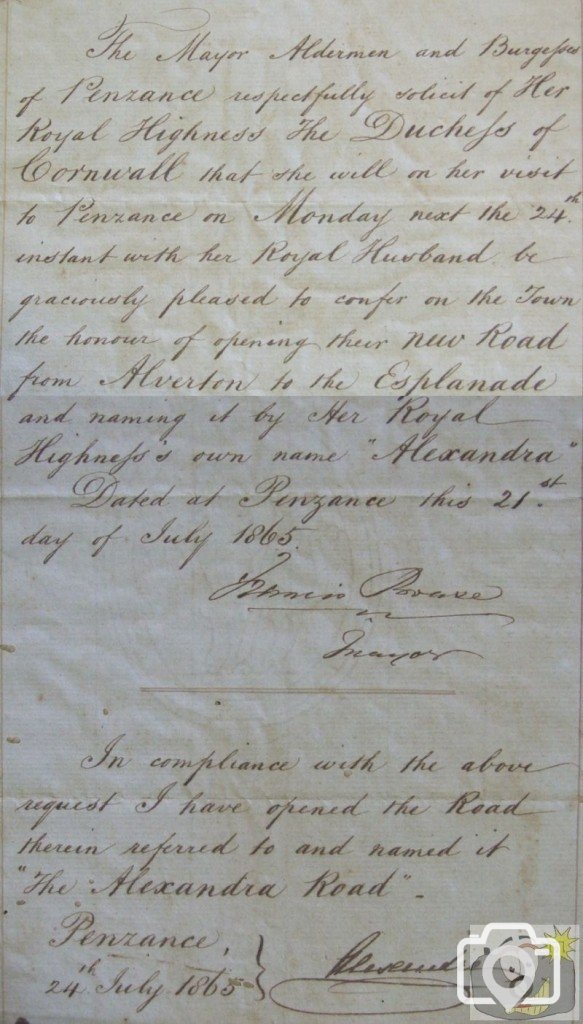 The Mayor Aldermen and Burgesses
of Penzance respectfully solicit of Her
Royal Highness The Duchess of
Cornwall that she will on her visit
to Penzance on Monday next the 24th.
instant with her Royal Husband be
graciously pleased to confer on the Town
the honour of opening their new Road
from Alverton to the Esplanade
and naming it by Her Royal
Highness's own name "Alexandra"
Dated at Penzance this 21st.
day of July 1865.
Francis Boase
Mayor
In compliance with the above
request I have opened the Road
therein referred to and named it
"The Alexandra Road".
Penzance,
24th July 1865 }